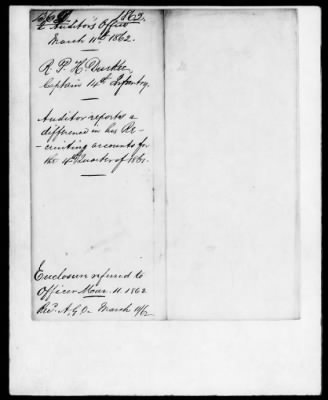 1862.
2 Auditor's Office
March 11th 1862.
R. P. H. Durkee
Captain 14th Infantry.
Auditor reports a
difference in his Re-
-cruiting accounts for
the 4th Quarter of 1861.
Enclosure refered to
Officer Mar. 11. 1862
Rec'd A.G.O. March 11/62